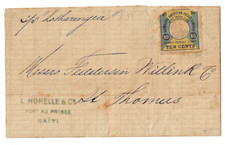 p Lotharingia
TEN CENTS
Messrs Feddersen Willink & Co
St Thomas
L. HORELLE & Co
PORT AU PRINCE
HAITI